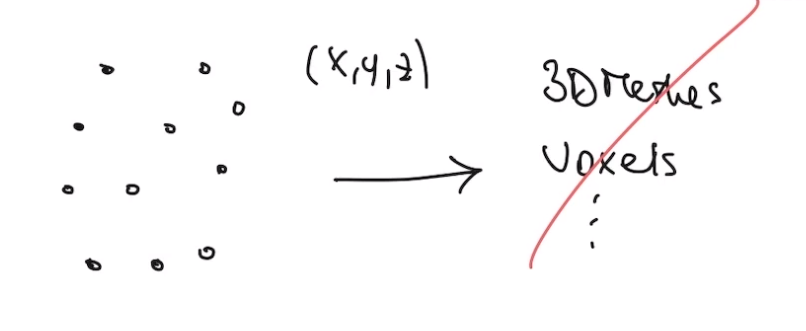 (x,y,z)
3D Meshes
Voxels
⋮